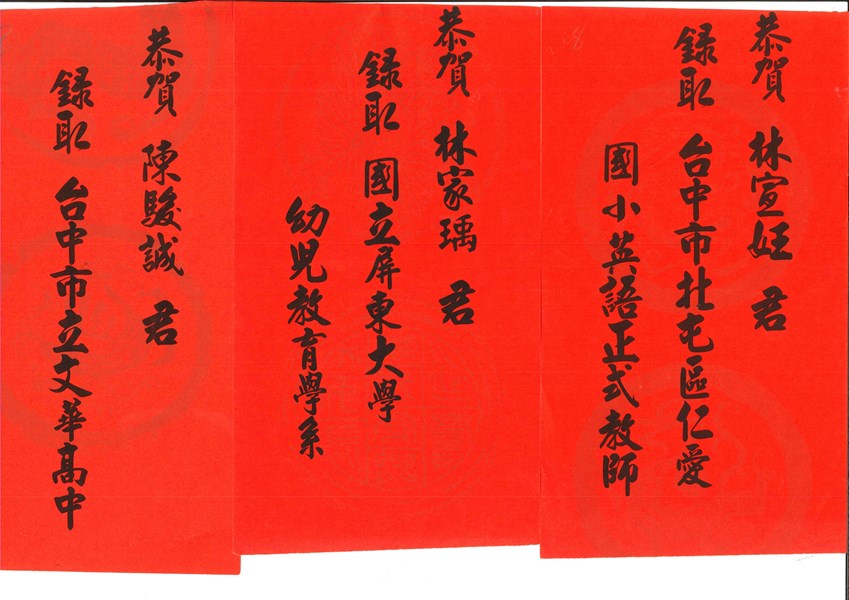 恭賀 林宣妊 君
錄取 台中市北屯區仁愛
國小英語正式教師
恭賀 林家瑀 君
錄取 國立屏東大學
幼兒教育學系
恭賀 陳駿誠 君
錄取 台中市立文華高中